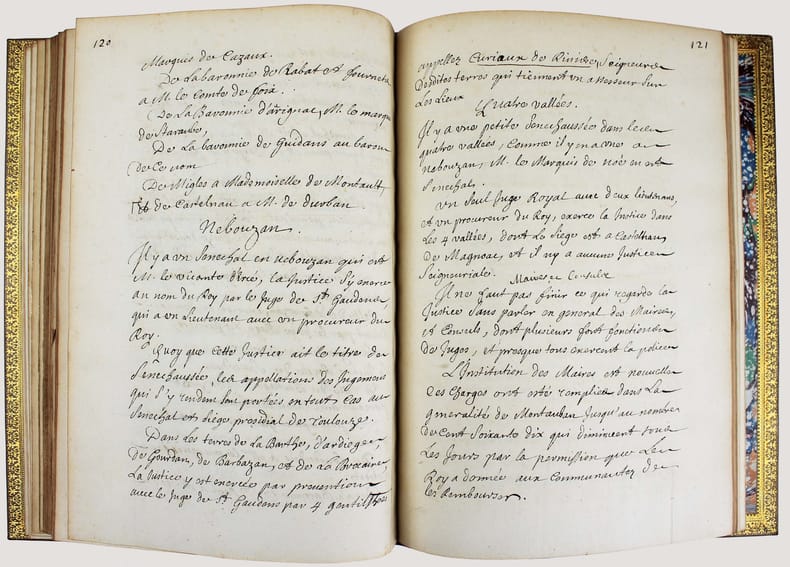 120
Marquis de Cazaux.
De La baronnie de Rabat et Fournets
a M. le Comte de foix.
De La Baronnie d'arignac, M. le marq
de
De La baronnie de Guidans au baron
de Ce nom
De Migles a Mademoiselle de Montault,
Et de Castelnau a M. de durban
Nebouzan.
Il y a vn Senechal en Nebouzan qui est
M. le vicomte d'Ercé, la Justice s'y exerce
au nom du Roy par le Juge de St. Gaudens,
qui a vn Lieutenant avec vn procureur du
Roy.
Quoy que Cette Justice ait le titre de
Senechaussée, les appellations des Jugemens
qui s'y rendent sont portées en tout Cas au
Senechal et siége presidial de Toulouze.
Dans les terres de La Barthe, d'ardieges,
de Gourdan, de Barbazan, et de La Brocaire,
La Justice y est exercée par prevention
avec le Juge de St. Gaudens par 4 gentilshoes
121
appellez Curiaux de Riviere, Seigneurs
Desdites terres qui tiennent vn assesseur Sur
Les Lieux
Quatre vallées.
Il y a vne petite Senechaussée dans les
quatre vallées, Comme il y en a vne en
nebouzan, M. le Marquis de noé en est
Senechal.
Vn Seul Juge Royal avec deux lieutenans,
et vn procureur du Roy, exerce la Justice dans
Les 4 vallées, dont Le Siege est a Castelnau
de Magnoac, et il n'y a aucune Justice
Seigneuriale.
Maires et Consuls
Il ne faut pas finir ce qui regarde la
Justice Sans parler en general des Maires,
et Consuls, dont plusieurs font fonction
De Juges, et presque tous exercent la police
L'Institution des Maires est nouvelle
Ces Charges ont esté remplies dans La
generalité de Montauban Jusqu'au nombre
de Cent Soixante dix qui diminuent tous
Les Jours par la permission que Le
Roy a donnée aux Communautez de
les Rembourser.